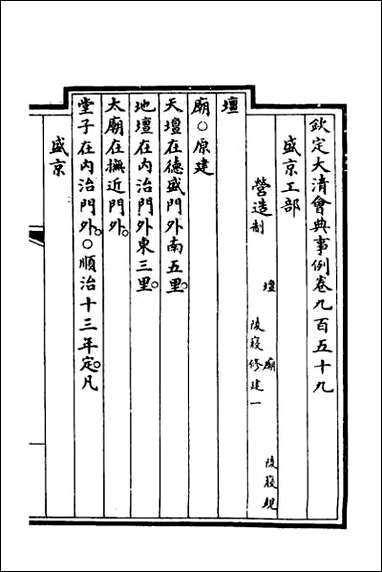 欽定大清會典事例卷九百五十九
盛京工部
營造 壇 廟 陵寢規
制 陵寢修建一
壇
廟○原建
天壇在德盛門外南五里
地壇在內治門外東三里
太廟在撫近門外
堂子在內治門外○順治十三年定凡
盛京